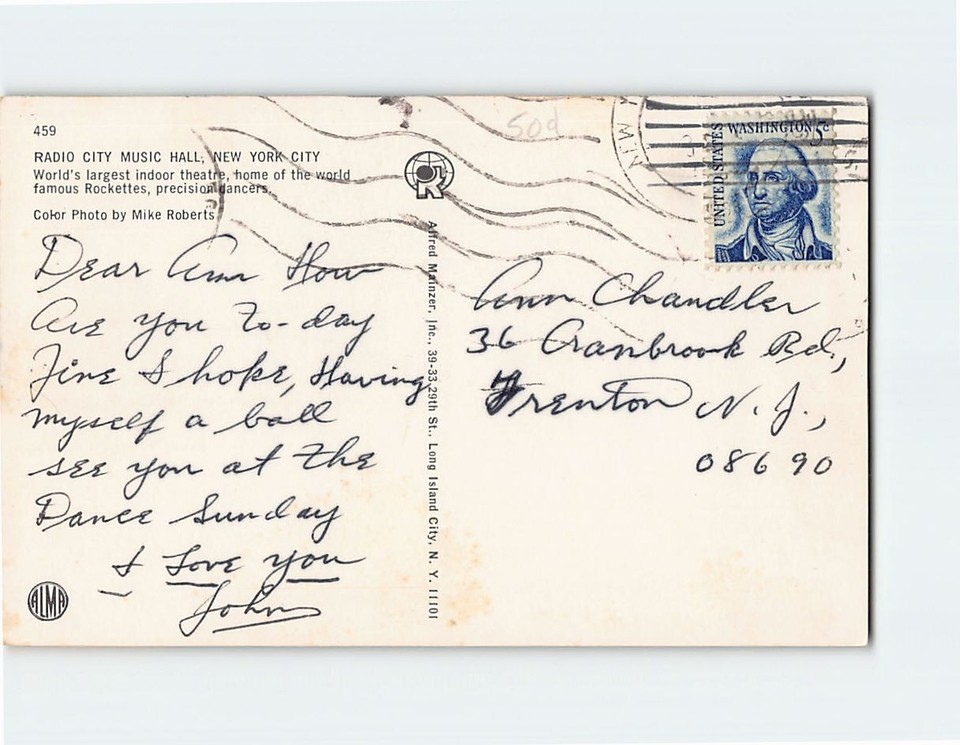 459
RADIO CITY MUSIC HALL, NEW YORK CITY
World's largest indoor theatre, home of the world
famous Rockettes, precision dancers.
Color Photo by Mike Roberts
Dear Ann How
Are you to-day
Fine I hope, Having
myself a ball
see you at the
Dance Sunday
I Love you
John
ALMA
R
Alfred Mainzer, Inc., 39-33, 29th St., Long Island City, N. Y. 11101
50d
NEW Y
UNITED STATES
WASHINGTON 5c
Ann Chandler
36 Cranbrook Rd.,
Trenton N. J.,
08690